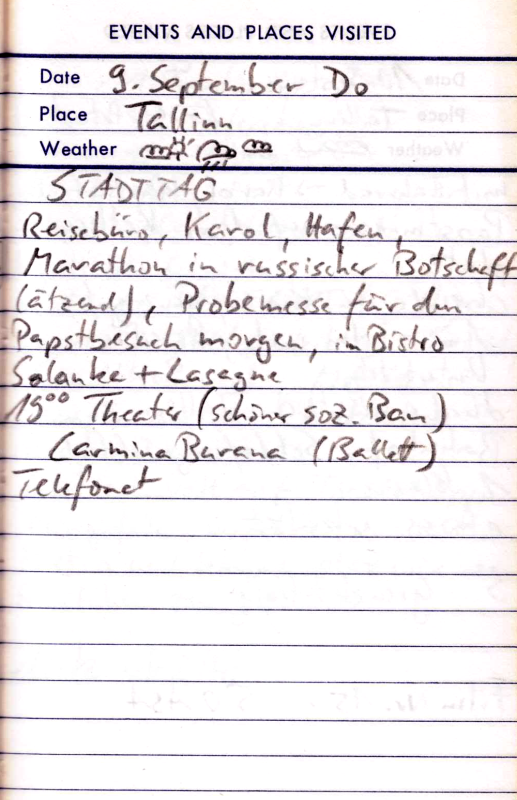 EVENTS AND PLACES VISITED
Date 9. September Do
Place Tallinn
Weather
STADTTAG
Reisebüro, Karol, Hafen,
Marathon in russischer Botschaft
(ätzend), Probemesse für den
Papstbesuch morgen, im Bistro
Solanka + Lasagne
19⁰⁰ Theater (schöner soz. Bau)
Carmina Burana (Ballett)
Telefonet